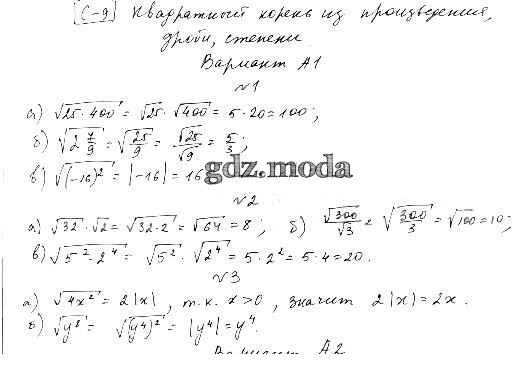 С-9 Квадратный корень из произведения,
дроби, степени
Вариант А1
№1
а) √25·400 = √25·√400 = 5·20 = 100;
б) √2 7/9 = √25/9 = √25/√9 = 5/3;
в) √(-16)² = |-16| = 16
gdz.moda
№2
а) √32·√2 = √32·2 = √64 = 8; б) √300/√3 = √300/3 = √100 = 10;
в) √5²·2⁴ = √5²·√2⁴ = 5·2² = 5·4 = 20.
№3
а) √4x² = 2|x|, т.к. x>0, значит 2|x| = 2x.
б) √y⁸ = √(y⁴)² = |y⁴| = y⁴.
Вариант А2